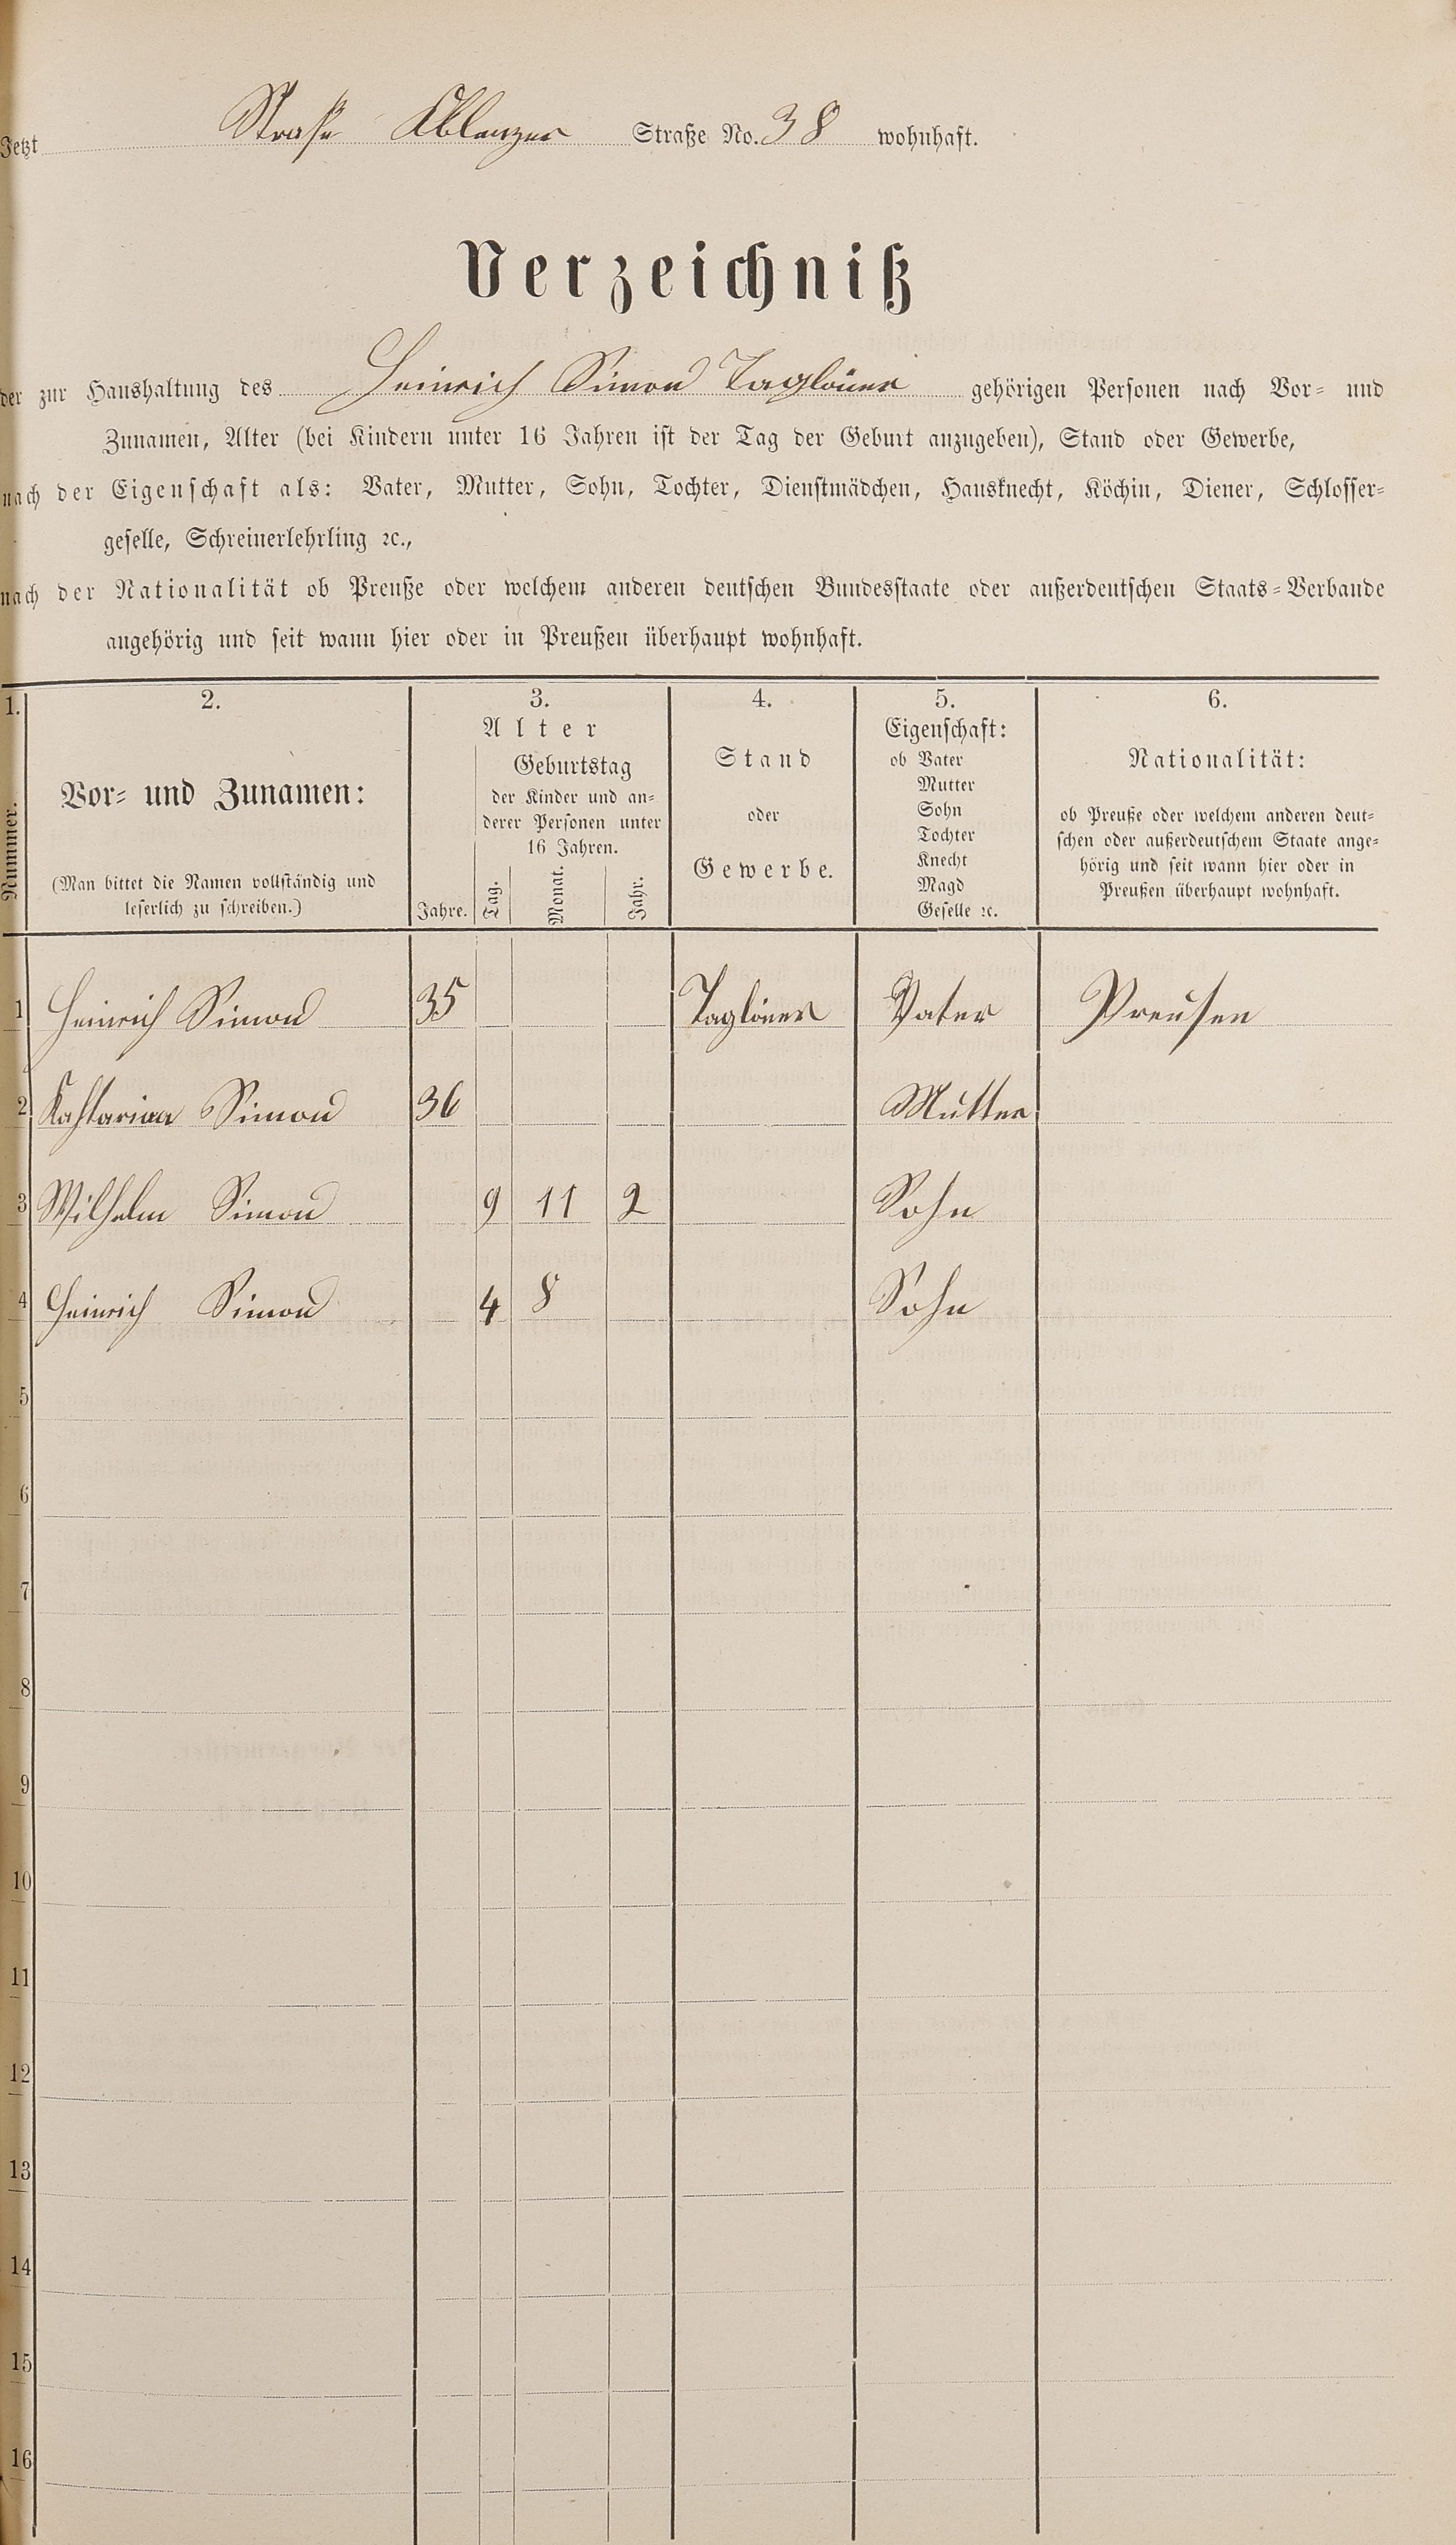 Jetzt Straße Coblenzer Straße No. 38 wohnhaft.
Verzeichniß
der zur Haushaltung des Heinrich Simon Taglöner gehörigen Personen nach Vor- und
Zunamen, Alter (bei Kindern unter 16 Jahren ist der Tag der Geburt anzugeben), Stand oder Gewerbe,
nach der Eigenschaft als: Vater, Mutter, Sohn, Tochter, Dienstmädchen, Hausknecht, Köchin, Diener, Schlosser-
geselle, Schreinerlehrling ꝛc.,
nach der Nationalität ob Preuße oder welchem anderen deutschen Bundesstaate oder außerdeutschen Staats-Verbande
angehörig und seit wann hier oder in Preußen überhaupt wohnhaft.
1. 2. 3. 4. 5. 6.
Nummer.
Vor- und Zunamen:
(Man bittet die Namen vollständig und
leserlich zu schreiben.)
Alter
Geburtstag
der Kinder und an-
derer Personen unter
16 Jahren.
Jahre. Tag. Monat. Jahr.
Stand
oder
Gewerbe.
Eigenschaft:
ob Vater
Mutter
Sohn
Tochter
Knecht
Magd
Geselle ꝛc.
Nationalität:
ob Preuße oder welchem anderen deut-
schen oder außerdeutschem Staate ange-
hörig und seit wann hier oder in
Preußen überhaupt wohnhaft.
1 Heinrich Simon 35 Taglöner Vater Preusen
2 Kahtarina Simon 36 Mutter
3 Wilhelm Simon 9 11 2 Sohn
4 Heinrich Simon 4 8 Sohn
5
6
7
8
9
10
11
12
13
14
15
16